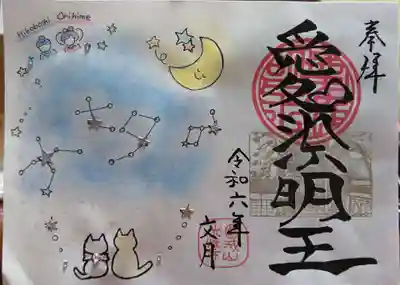 奉拝
愛染明王
令和六年
文月
Hikoboshi Orihime